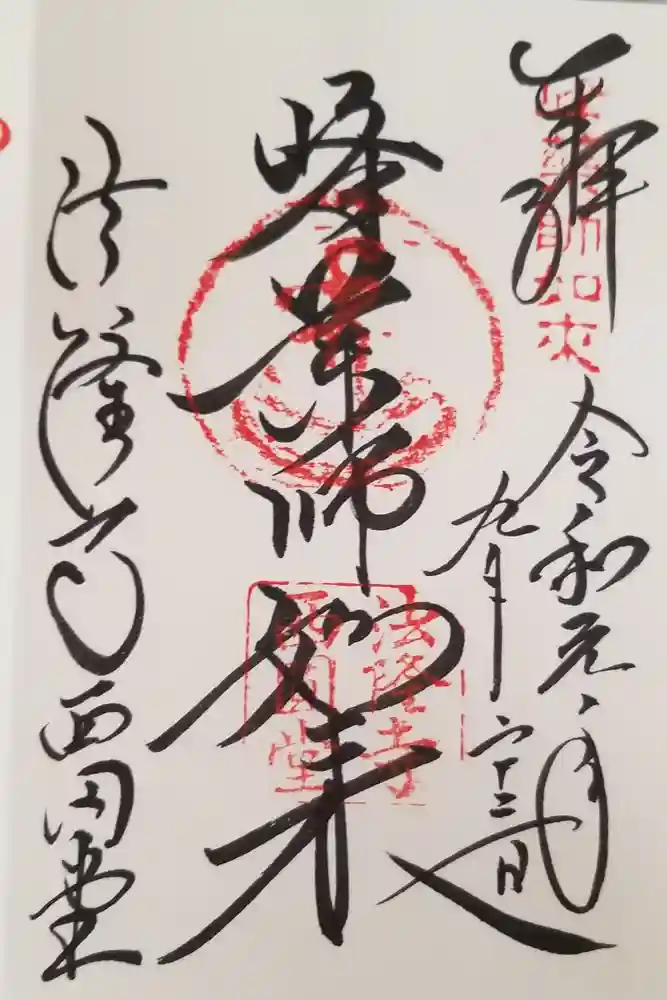 奉拝
令和元年
九月二十二日
峰薬師如来
法隆寺
西圓堂
法隆寺西円堂